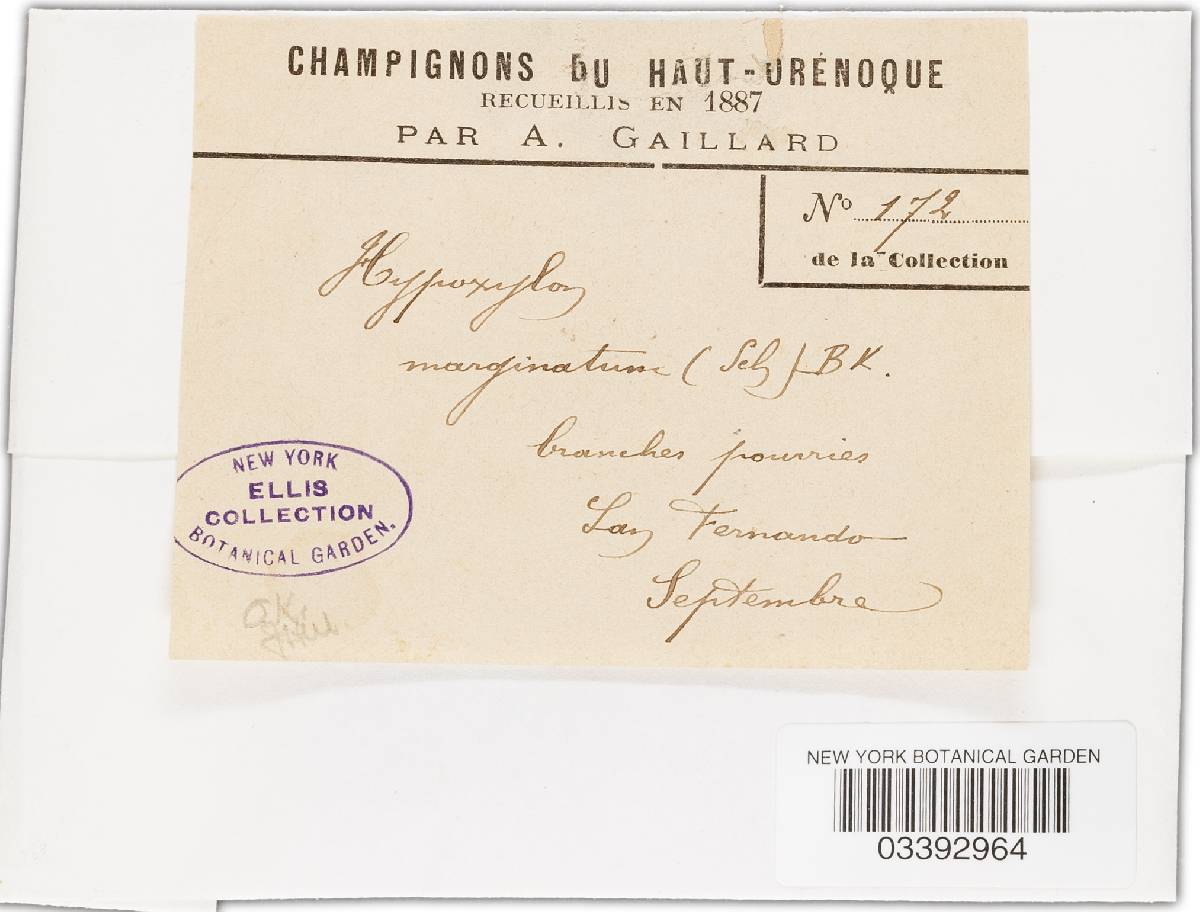 CHAMPIGNONS DU HAUT-ORÉNOQUE
RECUEILLIS EN 1887
PAR A. GAILLARD
No 172
de la Collection
Hypoxylon
marginatum (Sch) BK.
branches pourries
San Fernando
Septembre
NEW YORK
ELLIS
COLLECTION
BOTANICAL GARDEN.
O.K.
NEW YORK BOTANICAL GARDEN
03392964